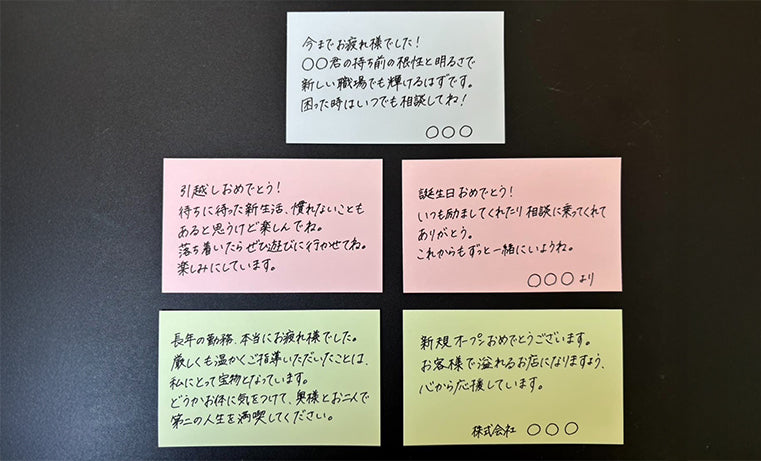 今までお疲れ様でした！
〇〇君の持ち前の根性と明るさで
新しい職場でも輝けるはずです。
困った時はいつでも相談してね！
〇〇〇
引越しおめでとう！
待ちに待った新生活、慣れないことも
あると思うけど楽しんでね。
落ち着いたらぜひ遊びに行かせてね。
楽しみにしています。
誕生日おめでとう！
いつも励ましてくれたり相談に乗ってくれて
ありがとう。
これからもずっと一緒にいようね。
〇〇〇より
長年の勤務、本当にお疲れ様でした。
厳しくも温かくご指導いただいたことは、
私にとって宝物となっています。
どうかお体に気をつけて、奥様とお二人で
第二の人生を満喫してください。
新規オープンおめでとうございます。
お客様で溢れるお店になりますよう、
心から応援しています。
株式会社 〇〇〇